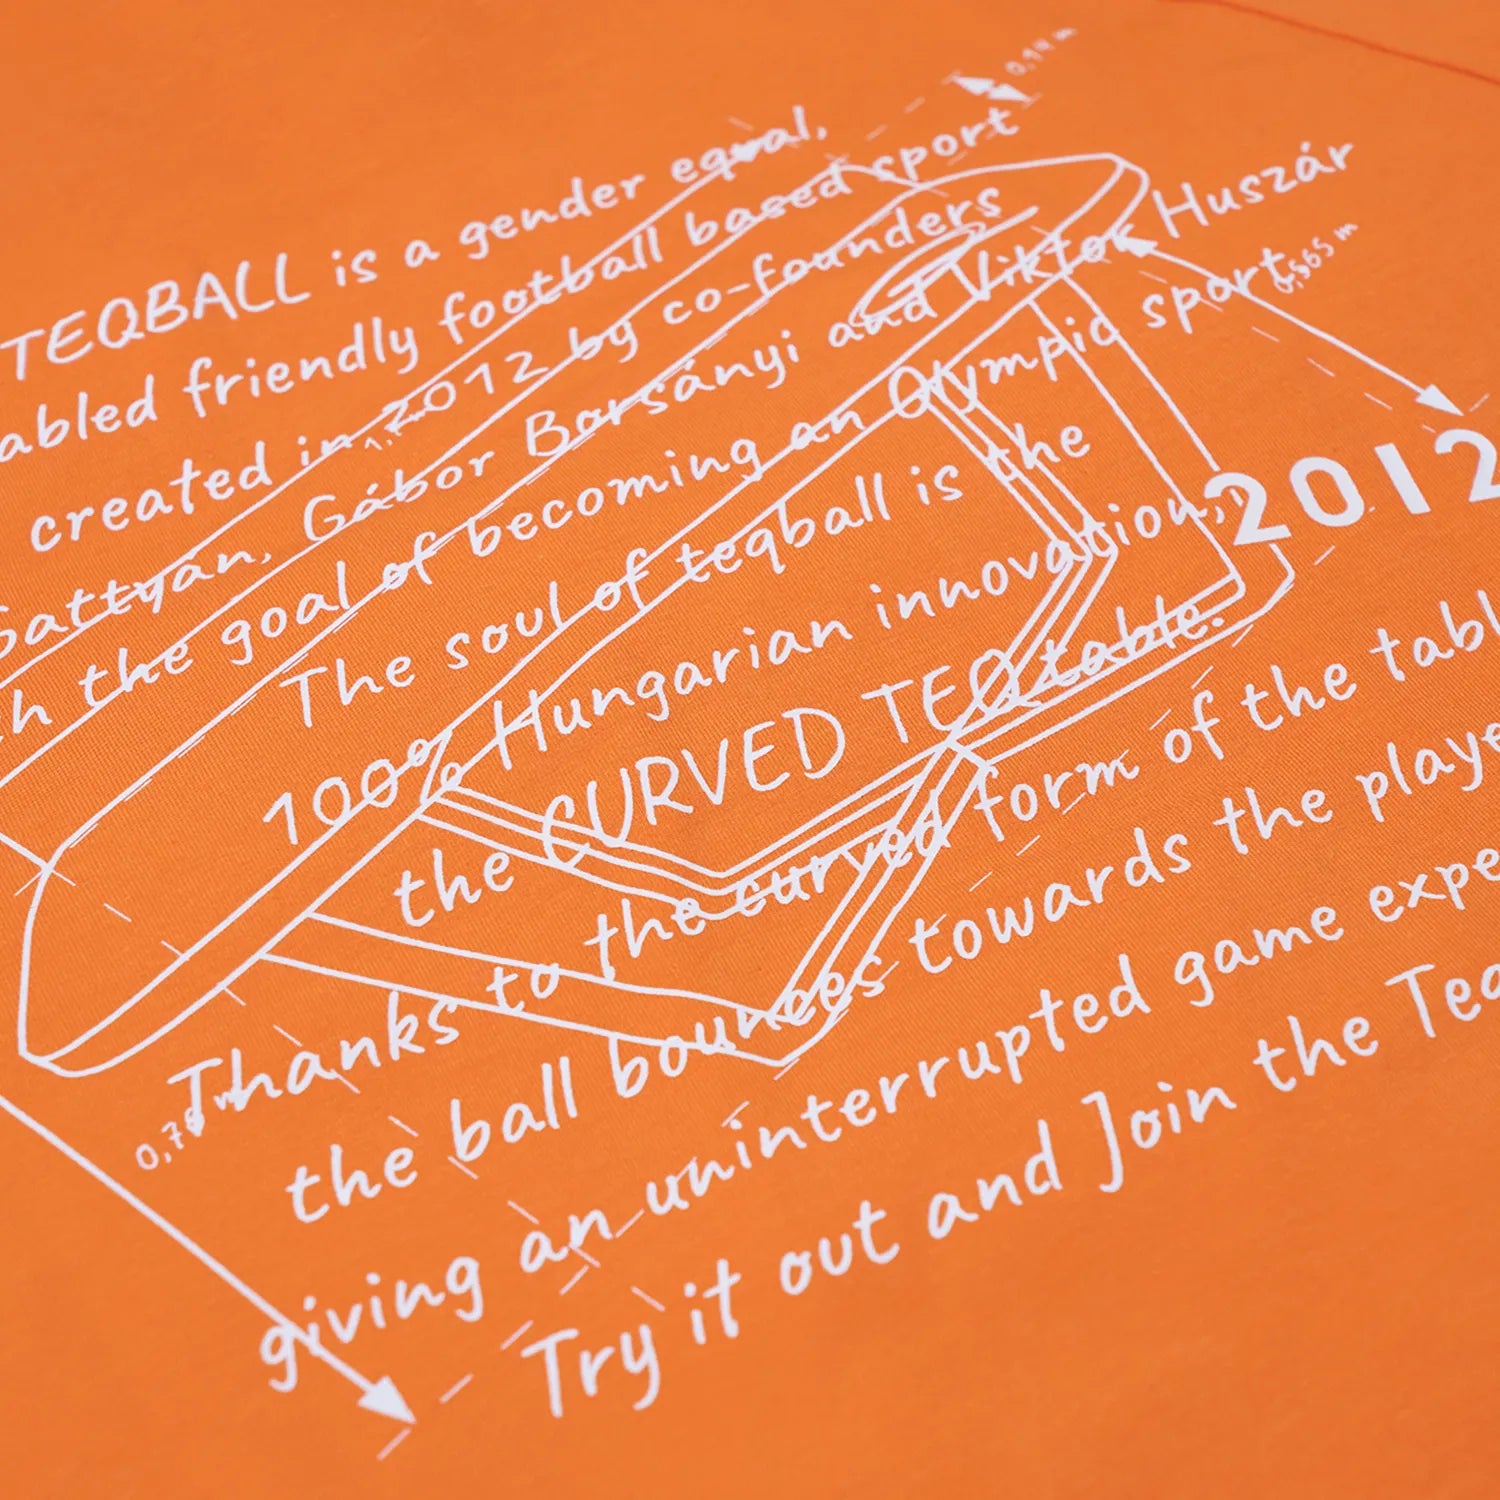 0,14 m
TEQBALL is a gender equal,
abled friendly football based sport
created in 2012 by co-founders
Gattyán, Gábor Borsányi and Viktor Huszár
the goal of becoming an Olympic sport.
0,565 m
The soul of teqball is the
100% Hungarian innovation,
2012
the CURVED TEQ table.
Thanks to the curved form of the tabl
the ball bounces towards the playe
0,76 m
giving an uninterrupted game expe
Try it out and Join the Teq